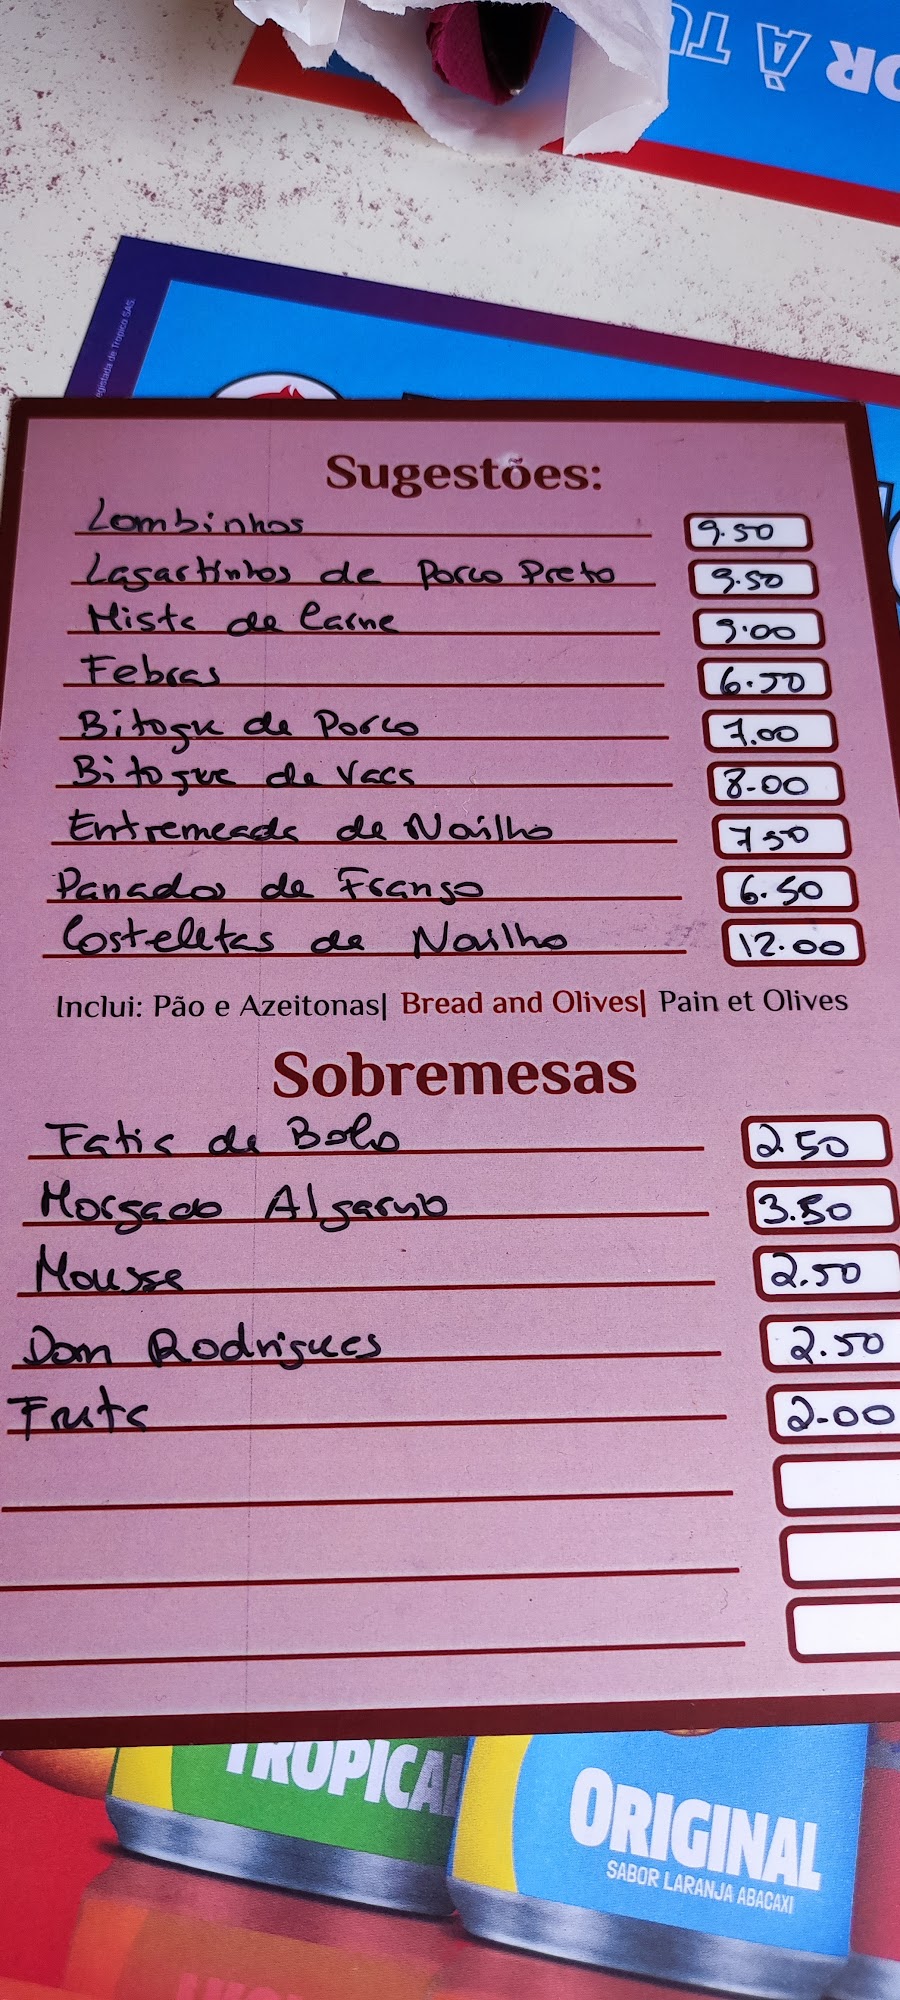 OR À TU
egistada de Tropico SAS.
Sugestões:
Lombinhos 9.50
Lagartinhos de Porco Preto 9.50
Mista de Carne 9.00
Febras 6.50
Bitoque de Porco 7.00
Bitoque de Vaca 8.00
Entremeada de Novilho 7 50
Panados de Frango 6.50
Costeletas de Novilho 12.00
Inclui: Pão e Azeitonas| Bread and Olives| Pain et Olives
Sobremesas
Fatia de Bolo 2 50
Morgado Algarvio 3.50
Mousse 2.50
Dom Rodrigues 2.50
Fruta 2.00
TROPICAL
ORIGINAL
SABOR LARANJA ABACAXI